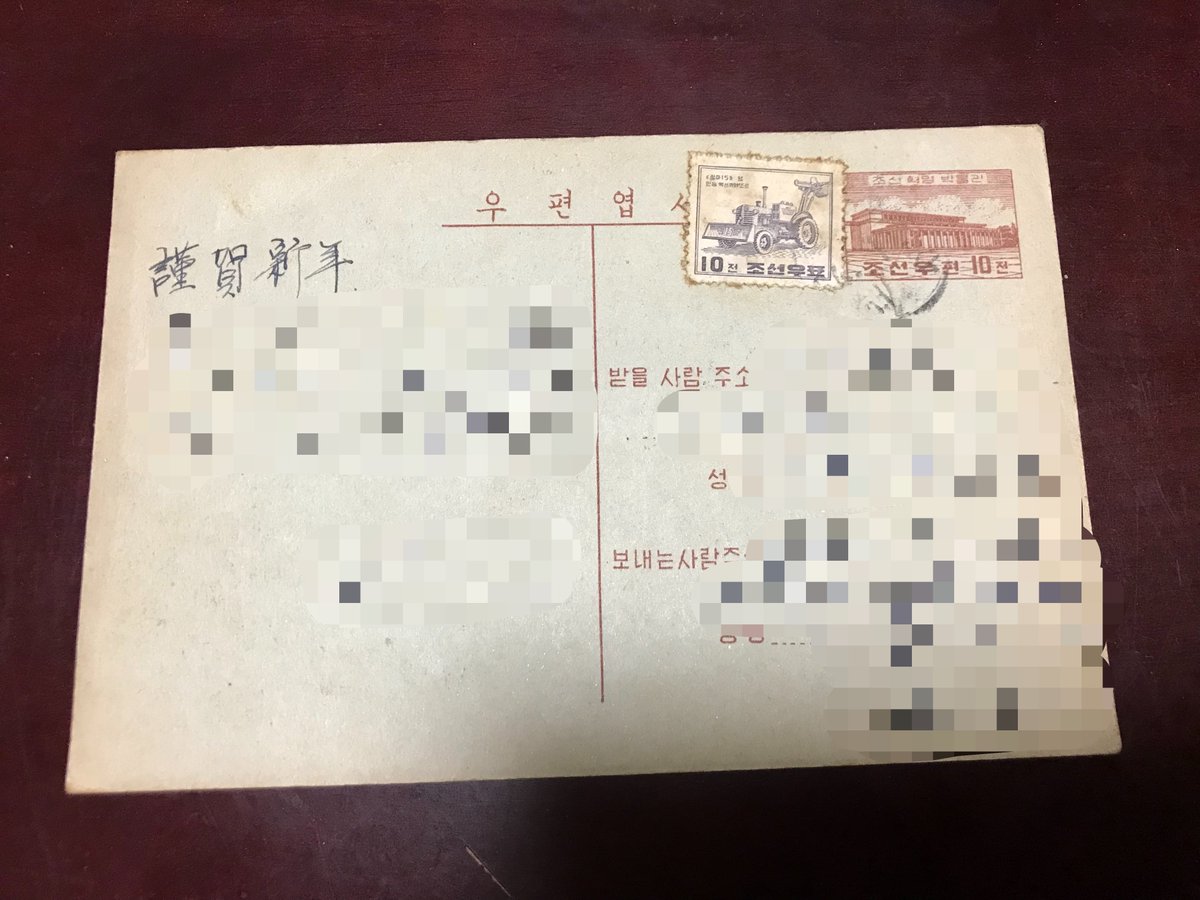 우 편 엽
謹賀新年
10전 조선우표
조선혁명박물관
조선우편 10전
받을 사람 주소
성
보내는사람주